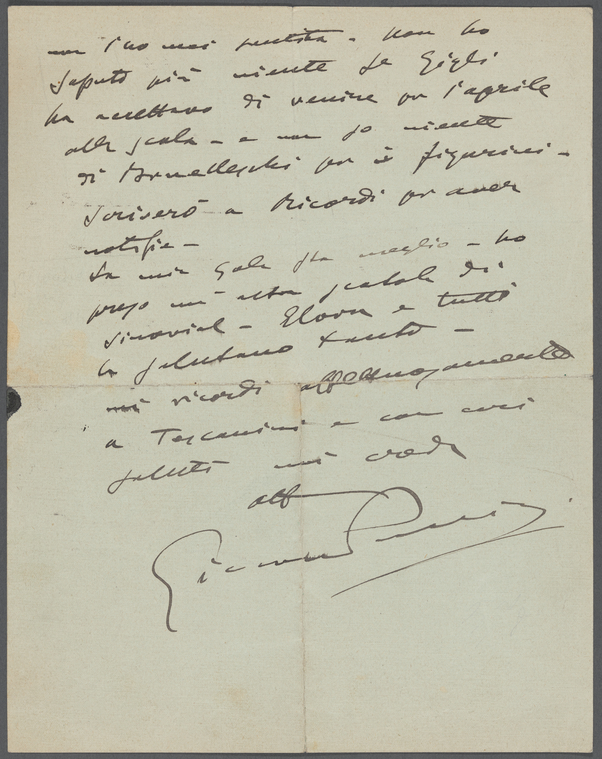 non l'ho mai sentita - non ho
saputo più niente se Gigli
ha accettato di venire per l'aprile
alla scala - e non so niente
di Brunelleschi per i figurini -
scriverò a Ricordi per aver
notizie -
La mia gola sta meglio - ho
preso un'altra scatola di
Elvira e tutti
la salutano tanto -
mi ricordi affettuosamente
a Toscanini e con cari
saluti mi creda
aff
Giacomo Puccini